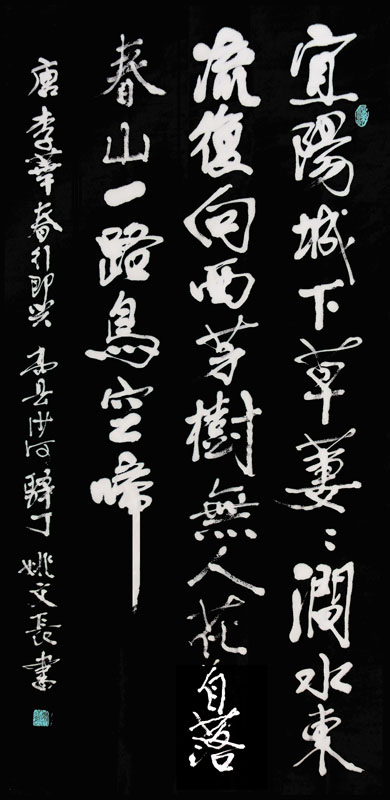 宜陽城下草萋〻澗水東
流復向西芳樹無人花自落
春山一路鳥空啼
唐李華春行即兴 嵩县 河驛丁 姚文長書